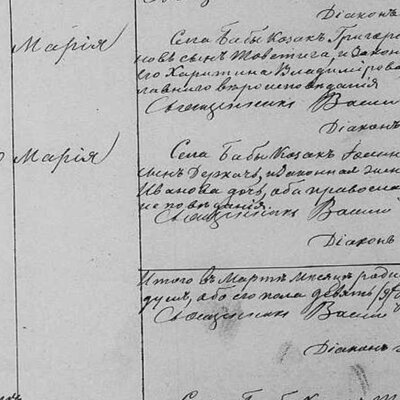 Діаконъ
Марія
Села Бабы Козакъ Григорі
новъ сынъ Жовтига, и Закон
его Харитина Владиміров
славнаго вѣроисповѣданія
Священникъ Васи
Діаконъ
Марія
Села Бабы Козакъ
сынъ Деркачъ, и Законная жен
Иванова дочь, оба православ
исповѣданія
Священникъ Васи
Діаконъ
Итого въ Мартѣ мѣсяцѣ роди
душъ, обоего пола девять
Священникъ Васи
Діаконъ